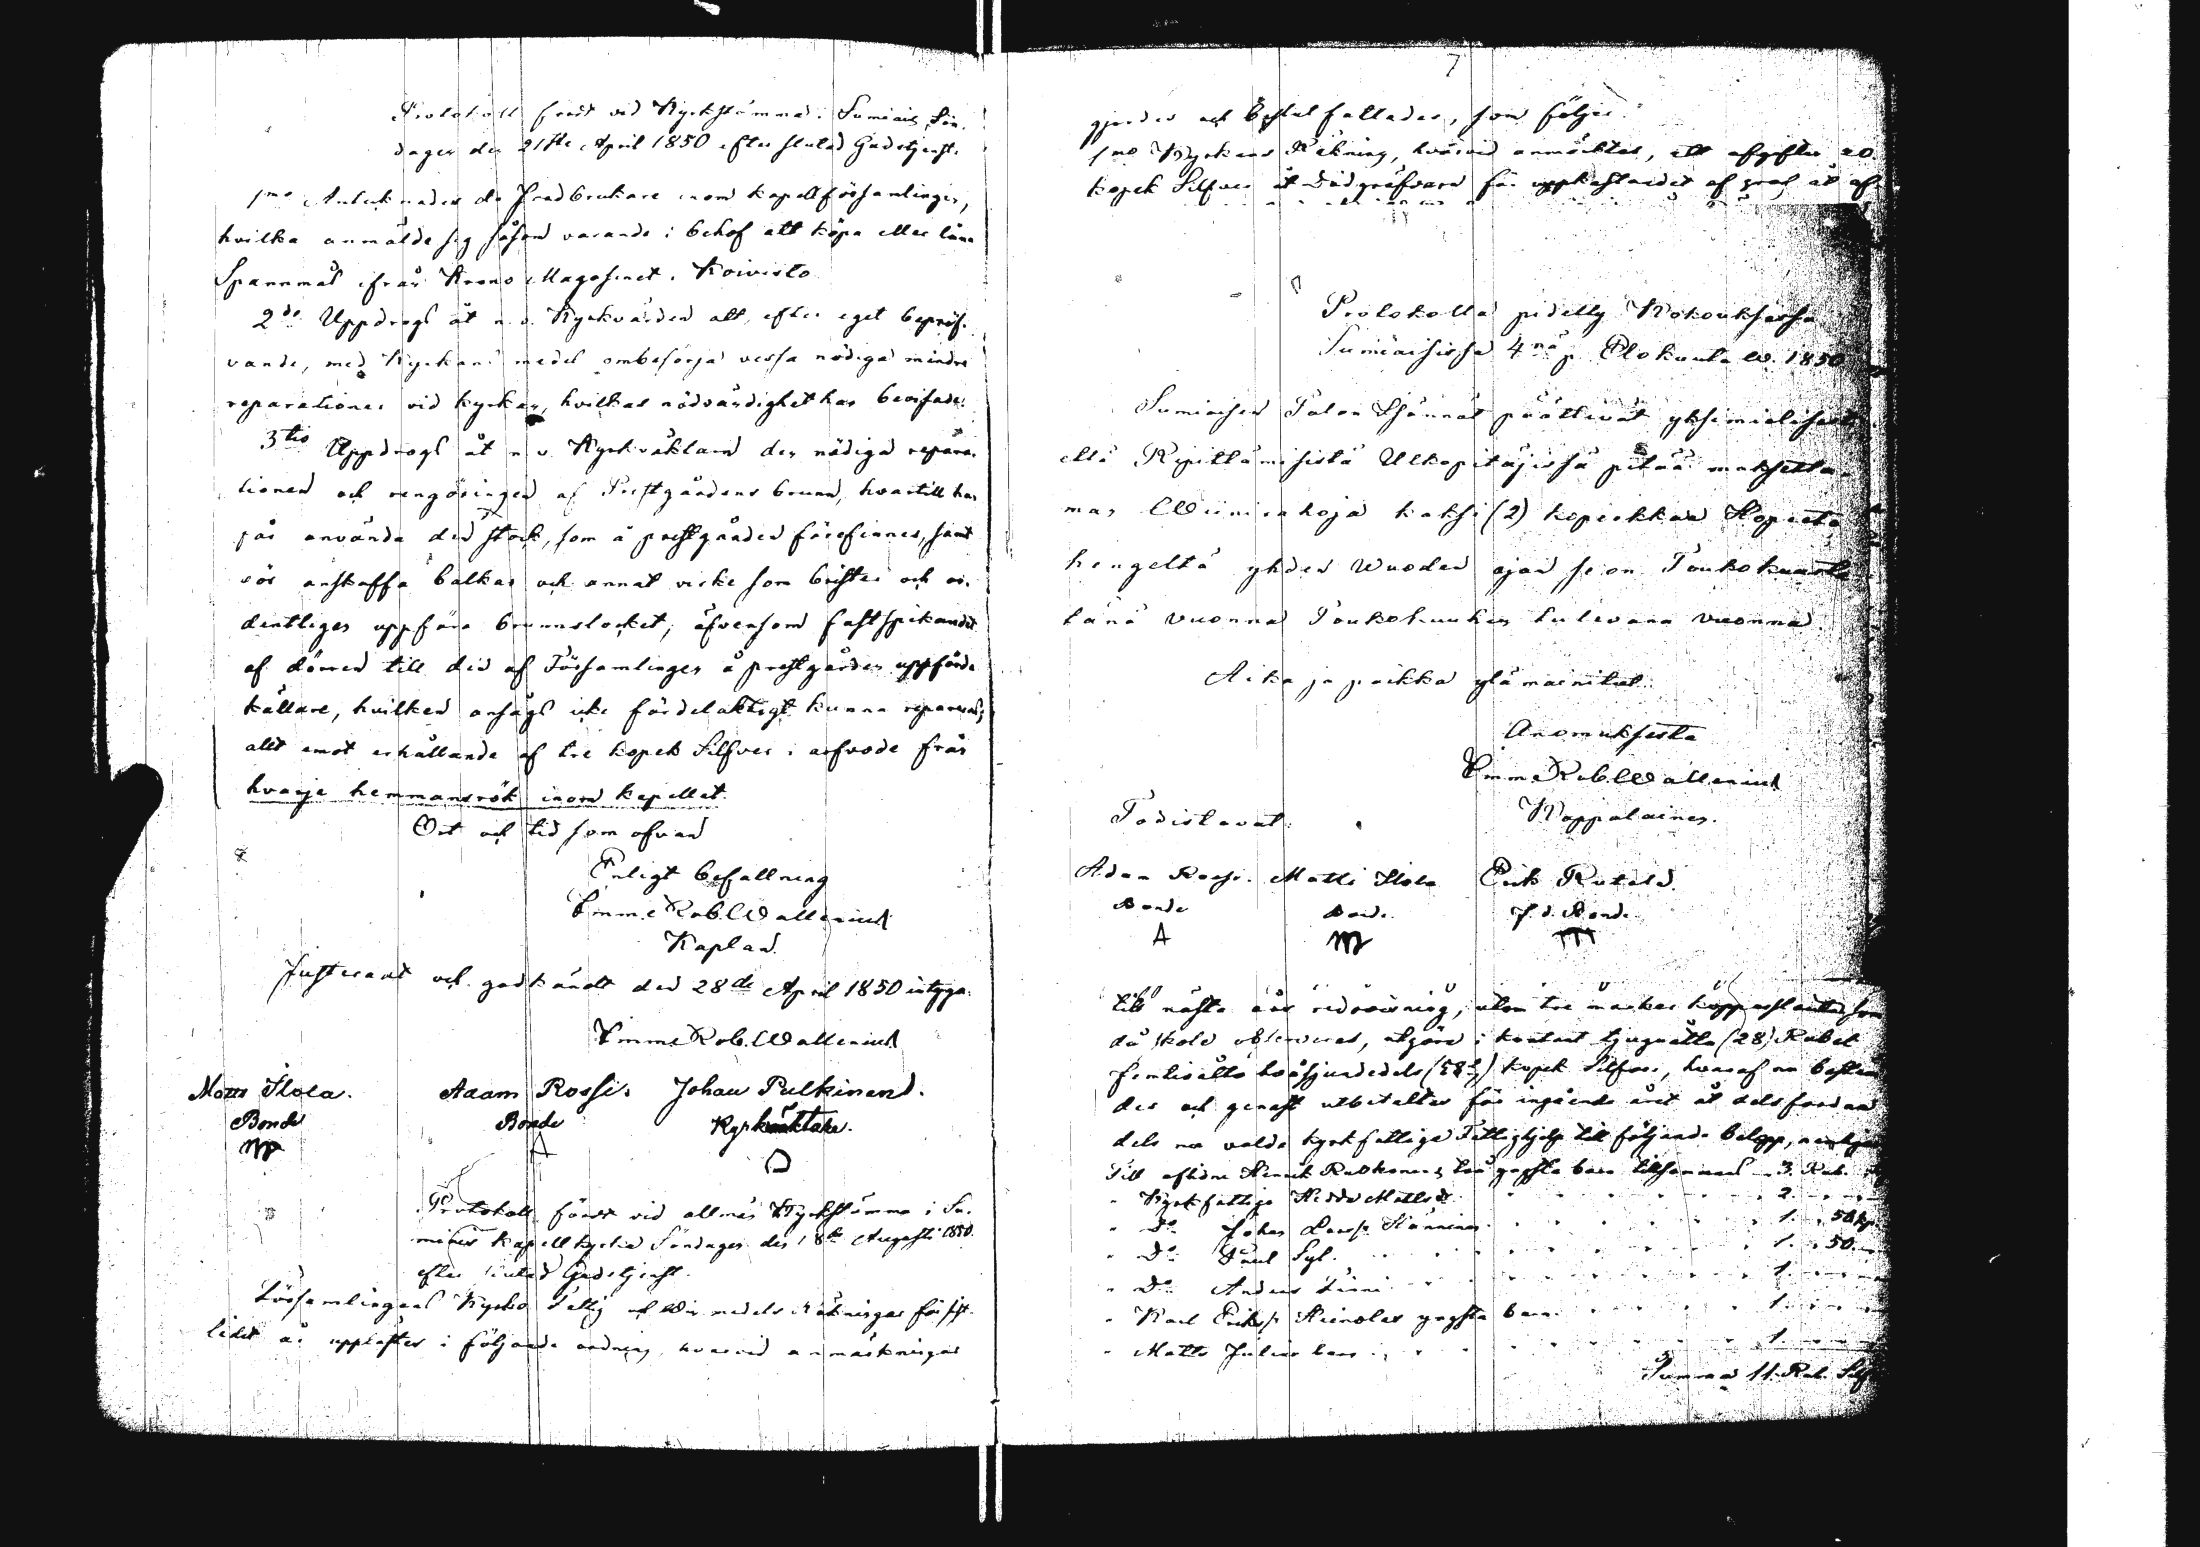 Protokoll fördt vid Kyrkstämma i Sumiais Sön-
dagen den 21sta April 1850 efter slutad Gudstjenst.
1mo Antecknades de Jordbrukare inom kapellförsamlingen,
hvilka anmälde sig såsom varande i behof att köpa eller låna
Spannmål ifrån Krono Magasinet i Koivisto
2do Uppdrogs åt n. v. Kyrkvärden att, efter eget bepröf-
vande, med Kyrkans medel ombesörja vissa nödiga mindre
reparationer vid kyrkan, hvilkas nödvändighet har bevisade.
3tio Uppdrogs åt n. v. Kyrkväktaren den nödiga repara-
tionen och rengöringen af Prestgårdens brunn, hvartill han
får använda den stock, som å prestgården förefinnes, samt
bör anskaffa balkar och annat virke som brister och or-
dentligen uppföra brunnslocket, äfvensom fastspikandet
af dörren till den af Församlingen å prestgården uppförde
källare, hvilken ansågs icke fördelaktigt kunna repareras;
allt emot erhållande af tre kopek Silfver i arfvode från
hvarje hemmansrök inom kapellet.
Ort och tid som ofvan
Enligt befallning
Emme Rob. Wallenius
Kaplan.
Justerat och godkändt den 28de April 1850 intyga:
Emme Rob. Wallenius
Matts Ilola. Adam Rossi. Johan Pulkinen.
Bonde Bonde Kyrkväktare.
Protokoll fördt vid allmän Kyrkstämma i Su-
miais kapellkyrka Söndagen den 18de Augusti 1850.
efter slutad Gudstjenst.
Församlingens Kyrko Fattig och Vin medels Räkningar för sist-
lidet år upplästes i följande ordning, hvarvid anmärkningar
7
gjordes och beslut fattades, som följer:
1mo Kyrkans Räkning, hvarvid anmärktes, att afgiften 20
kopek Silfver åt Dödgräfvaren för uppkastandet af graf åt af-
Protokolla pidetty Kokouksessa
Sumiaisissa 4nä p. Elokuuta W. 1850
Sumiaisen Talon Isännät päättivät yksimielisesti
että Ripittämisistä Ulkopitäjissä pitää maksetta-
man Wiinirahoja kaksi (2) kopeikkaa Hopeeta
hengeltä yhden Wuoden ajan se on Toukokuusta
tänä vuonna Toukokuuhun tulevana vuonna.
Aika ja paikka ylämainitut.
Anomuksesta
Emme Rob. Wallenius
Kappalainen.
Todistavat:
Adam Rossi. Matti Ilola Erik Rutala.
Bonde Bonde f. d. Bonde
till nästa års redovisning, utom tre
då skola observeras, utgöra i kontant tjuguåtta (28) Rubel
femtioåtta tvåsjundedels (58 2/7) kopek Silfver, hvaraf nu bestäm-
des och genast utbetaltes för ingående året åt dels fordna
dels nu valda kyrkfattiga Fattighjelp till följande belopp, nemligen
Till aflidne Henrik Ruskonens två yngsta barn tillsammans 3. Rub.
" Kyrkfattiga Hedda Mattsdr. 2.
" Do Johan Larss. Hänninen 1. 50 kp.
" Do Paul Syl. 1. 50
" Do Anders Finni 1.
" Karl Erikss. Heinolas yngsta barn 1.
" Matts Julius barn 1.
Summa 11. Rub. Silf